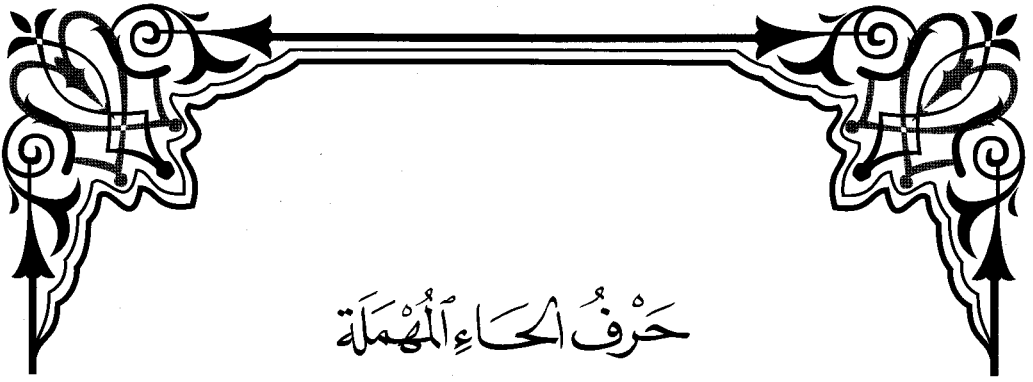 حَرْفُ الحَاءِ ٱلْمُهْمَلَة